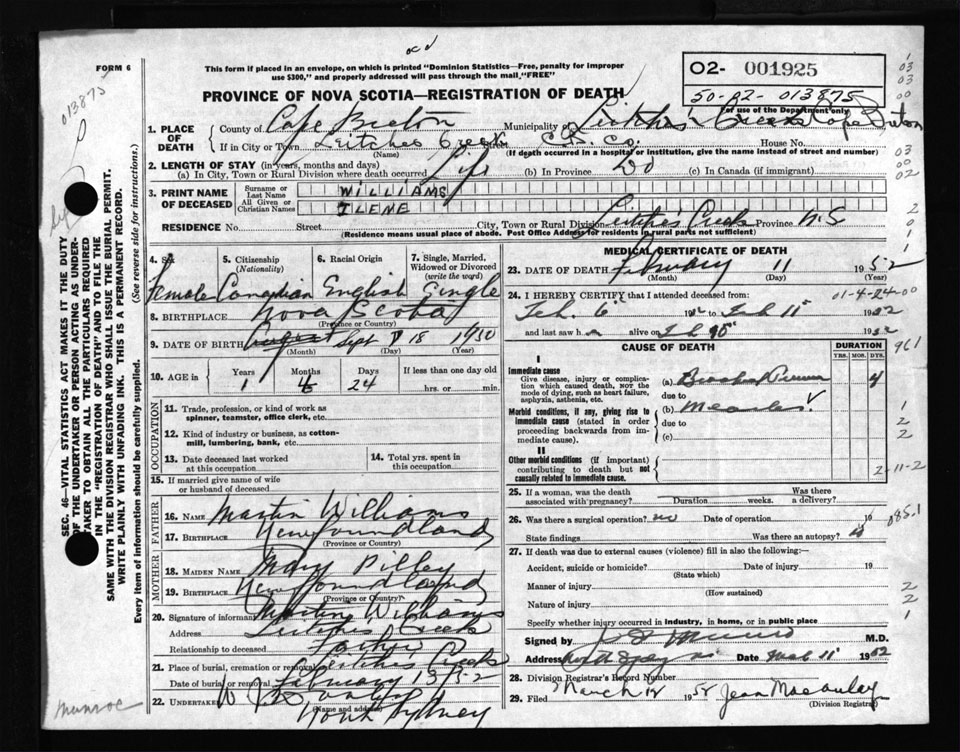 FORM 6
This form if placed in an envelope, on which is printed "Dominion Statistics—Free, penalty for improper
use $300," and properly addressed will pass through the mail, "FREE"
PROVINCE OF NOVA SCOTIA—REGISTRATION OF DEATH
O2- 001925
50-02-013875
For use of the Department only
013875
1. PLACE OF DEATH
County of Cape Breton Municipality of Leitches Creek Cape Breton
If in City or Town Leitches Creek Street C.B. Co. House No.
(Name) (If death occurred in a hospital or institution, give the name instead of street and number)
2. LENGTH OF STAY (in years, months and days)
(a) In City, Town or Rural Division where death occurred Life (b) In Province Do (c) In Canada (if immigrant)
3. PRINT NAME OF DECEASED
Surname or Last Name WILLIAMS
All Given or Christian Names ILENE
RESIDENCE No. Street City, Town or Rural Division Leitches Creek Province N.S
(Residence means usual place of abode. Post Office Address for residents in rural parts not sufficient)
4. Sex 5. Citizenship (Nationality) 6. Racial Origin 7. Single, Married, Widowed or Divorced (write the word)
Female Canadian English Single
8. BIRTHPLACE Nova Scotia
(Province or Country)
9. DATE OF BIRTH August Sept 18 1950
(Month) (Day) (Year)
10. AGE in Years Months Days If less than one day old
1 4 24 hrs. or min.
OCCUPATION
11. Trade, profession, or kind of work as spinner, teamster, office clerk, etc.
12. Kind of industry or business, as cotton-mill, lumbering, bank, etc.
13. Date deceased last worked at this occupation
14. Total yrs. spent in this occupation
15. If married give name of wife or husband of deceased
FATHER
16. Name Martin Williams
17. Birthplace Newfoundland
(Province or Country)
MOTHER
18. MAIDEN NAME Mary Pilley
19. Birthplace Newfoundland
(Province or Country)
20. Signature of informant Martin Williams
Address Leitches Creek
Relationship to deceased Father
21. Place of burial, cremation or removal Leitches Creek
Date of burial or removal February 13/52
22. UNDERTAKER
(Name and address)
North Sydney
Munroe
MEDICAL CERTIFICATE OF DEATH
23. DATE OF DEATH February 11 1952
(Month) (Day) (Year)
24. I HEREBY CERTIFY that I attended deceased from:
01-4-24-00
Feb. 6 1952 to Feb 11 1952
and last saw h alive on Feb 1952
CAUSE OF DEATH
DURATION
YRS. MOS. DYS.
I
Immediate cause
Give disease, injury or complication which caused death, NOT the mode of dying, such as heart failure, asphyxia, asthenia, etc.
(a) 4
due to
Morbid conditions, if any, giving rise to immediate cause (stated in order proceeding backwards from immediate cause).
(b) Measles
due to
(c)
II
Other morbid conditions (if important) contributing to death but not causally related to immediate cause.
25. If a woman, was the death associated with pregnancy? Duration weeks. Was there a delivery?
26. Was there a surgical operation? no Date of operation 19
State findings Was there an autopsy?
27. If death was due to external causes (violence) fill in also the following:—
Accident, suicide or homicide? Date of injury 19
(State which)
Manner of injury
(How sustained)
Nature of injury
Specify whether injury occurred in industry, in home, or in public place
Signed by M.D.
Address North Sydney Date 1952
28. Division Registrar's Record Number
29. Filed March 12 1952 Jean Macauley
(Division Registrar)
SEC. 46—VITAL STATISTICS ACT MAKES IT THE DUTY
OF THE UNDERTAKER OR PERSON ACTING AS UNDER-
TAKER TO OBTAIN ALL THE PARTICULARS REQUIRED
IN THE "REGISTRATION OF DEATH" AND TO FILE THE
SAME WITH THE DIVISION REGISTRAR WHO SHALL ISSUE THE BURIAL PERMIT.
WRITE PLAINLY WITH UNFADING INK. THIS IS A PERMANENT RECORD.
Every item of information should be carefully supplied. (See reverse side for instructions.)